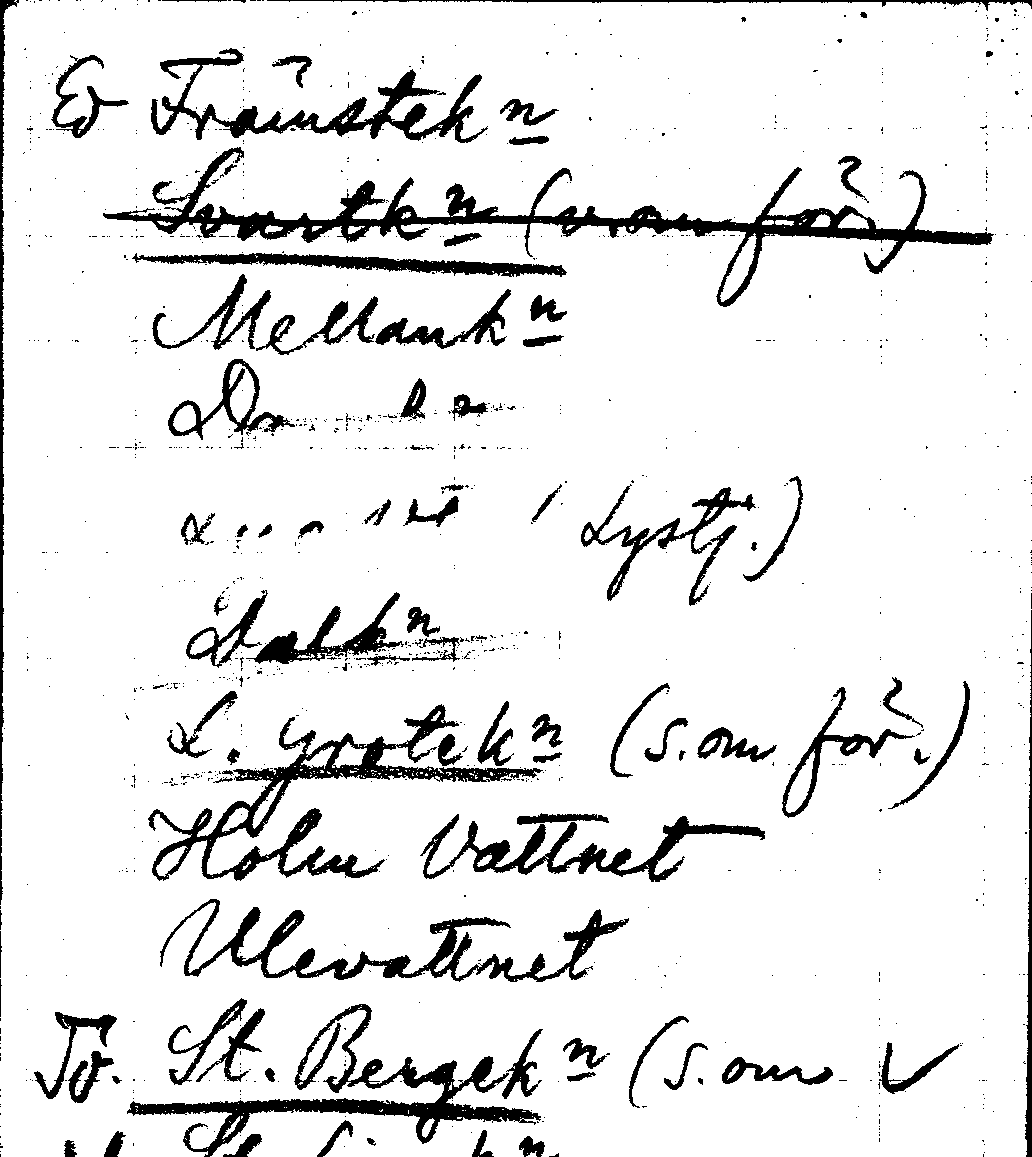 Ed Främstekn
Svartkn (v.om för.)
Mellankn
Lystj.)
Dalkn
L. Grotekn (s.om för.)
Holm Vattnet
Ulevattnet
To. St. Bergekn (s.om
St.